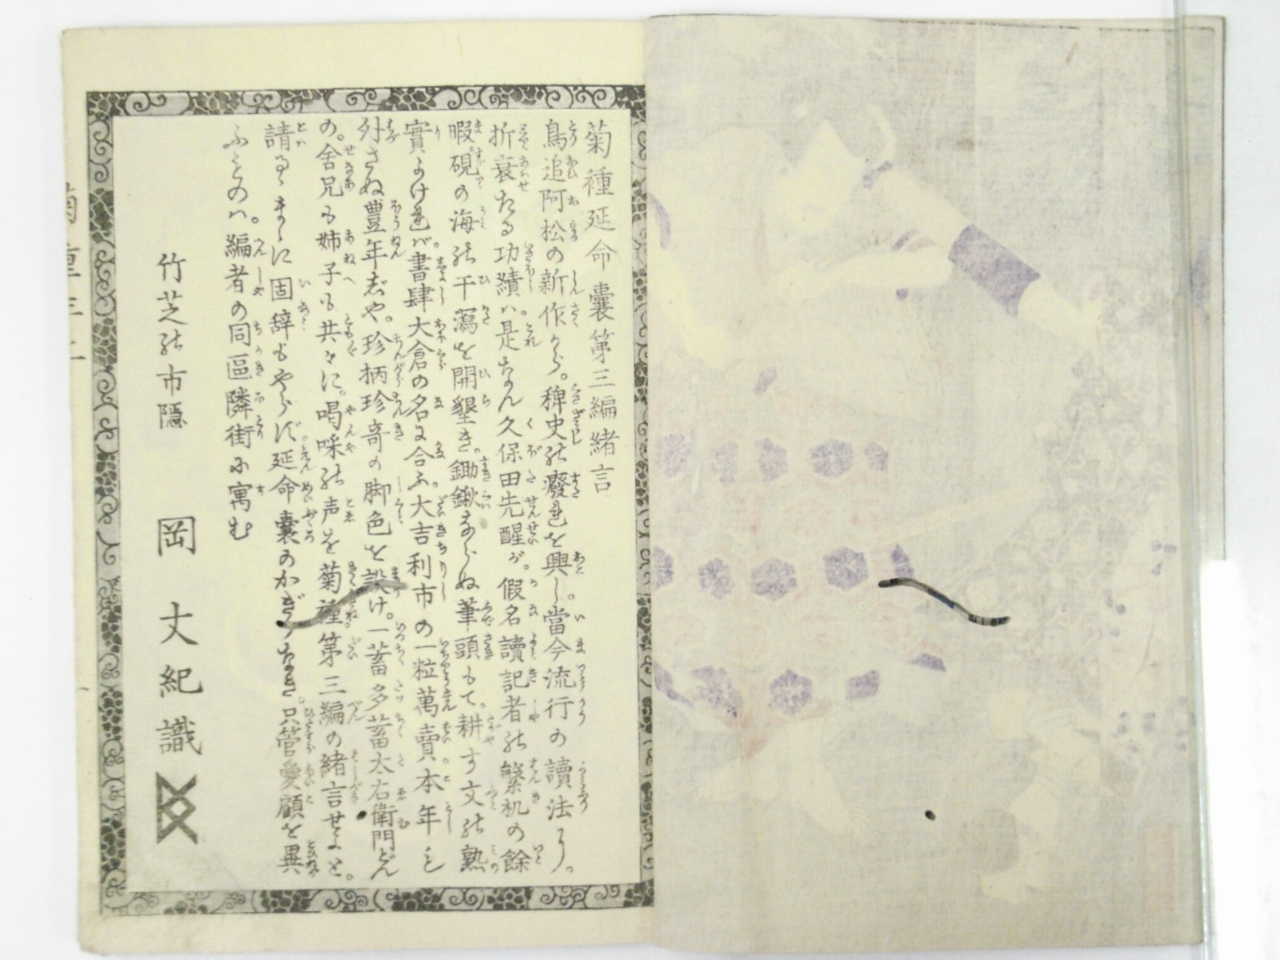 菊種延命嚢第三編緒言
鳥追阿松の新作から。稗史の癈れを興し當今流行の讀法より。
折衰たる功績ハ是なん久保田先醒が。假名讀記者の繁机の餘
暇。硯の海の干瀉を開墾き。鋤鍬ならぬ筆頭もて。耕す文の熟
實よけれバ。書肆大倉の名に合ふ大吉利市の一粒萬賣本年も
外さぬ豊年じや。珍柄珍奇の脚色を設け。一蓄多蓄太右衛門ぞ
の。舍兄も姉子も共々に。喝咪の声を菊種第三編の緒言せよと。
請るゝまゝに固辞もやらず延命嚢のかぎりなき。只管愛顧を異
ふものハ。編者の同區隣街に寓む
竹芝の市隱
岡丈紀識